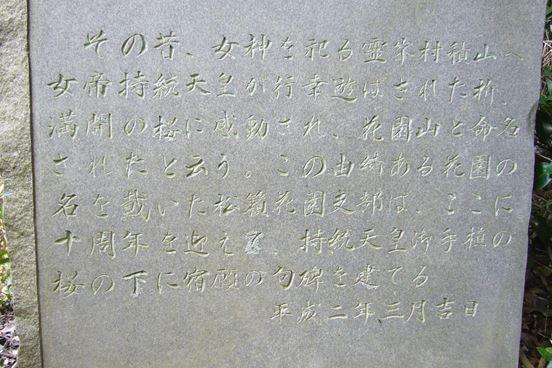 その昔、女神を祀る霊峯村積山へ
女帝持統天皇が行幸遊ばされた折、
満開の桜に感動され、花園山と命名
されたと云う。この由緒ある花園の
名を戴いた松籟花園支部は、ここに
十周年を迎え、持統天皇御手植の
桜の下に宿願の句碑を建てる
平成二年三月吉日